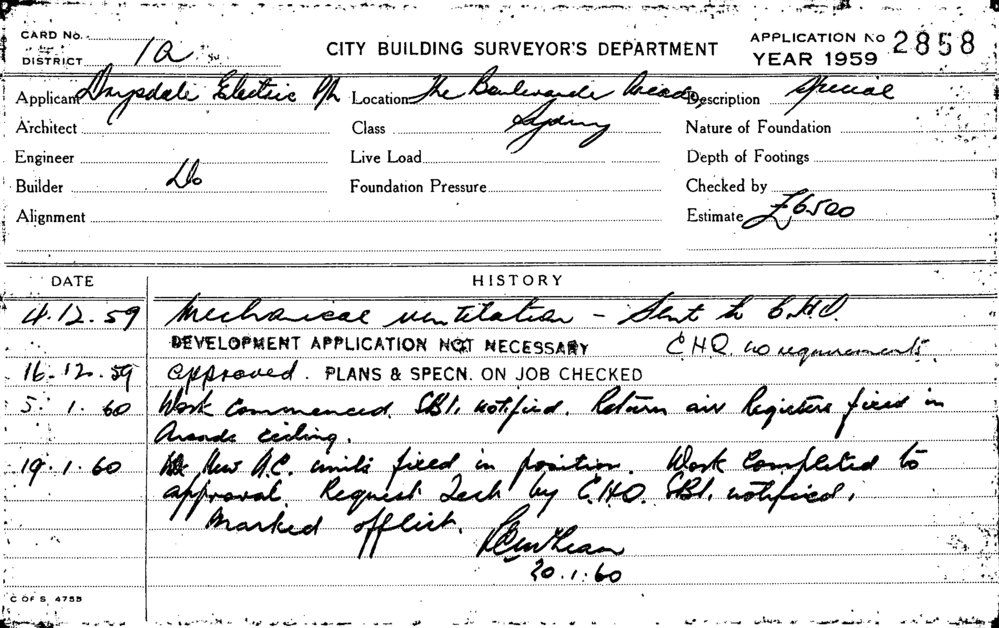 CARD No.
DISTRICT 1a
CITY BUILDING SURVEYOR'S DEPARTMENT
APPLICATION No 2858
YEAR 1959
Applicant Drysdale Electric P/L Location The Boulevarde Arcade, Description Special
Architect Class Sydney Nature of Foundation
Engineer Live Load Depth of Footings
Builder Do Foundation Pressure Checked by
Alignment Estimate £6500
DATE HISTORY
4.12.59 Mechanical ventilation - Sent to C.H.O.
DEVELOPMENT APPLICATION NOT NECESSARY C.H.O. no requirements.
16.12.59 approved. PLANS & SPECN. ON JOB CHECKED
5.1.60 Work commenced. SBI. notified. Return air Registers fixed in
Arcade ceiling.
19.1.60 New A.C. units fixed in position. Work completed to
approval. Request Test by C.H.O. SBI. notified.
Marked off list.
20.1.60
C OF S 4755